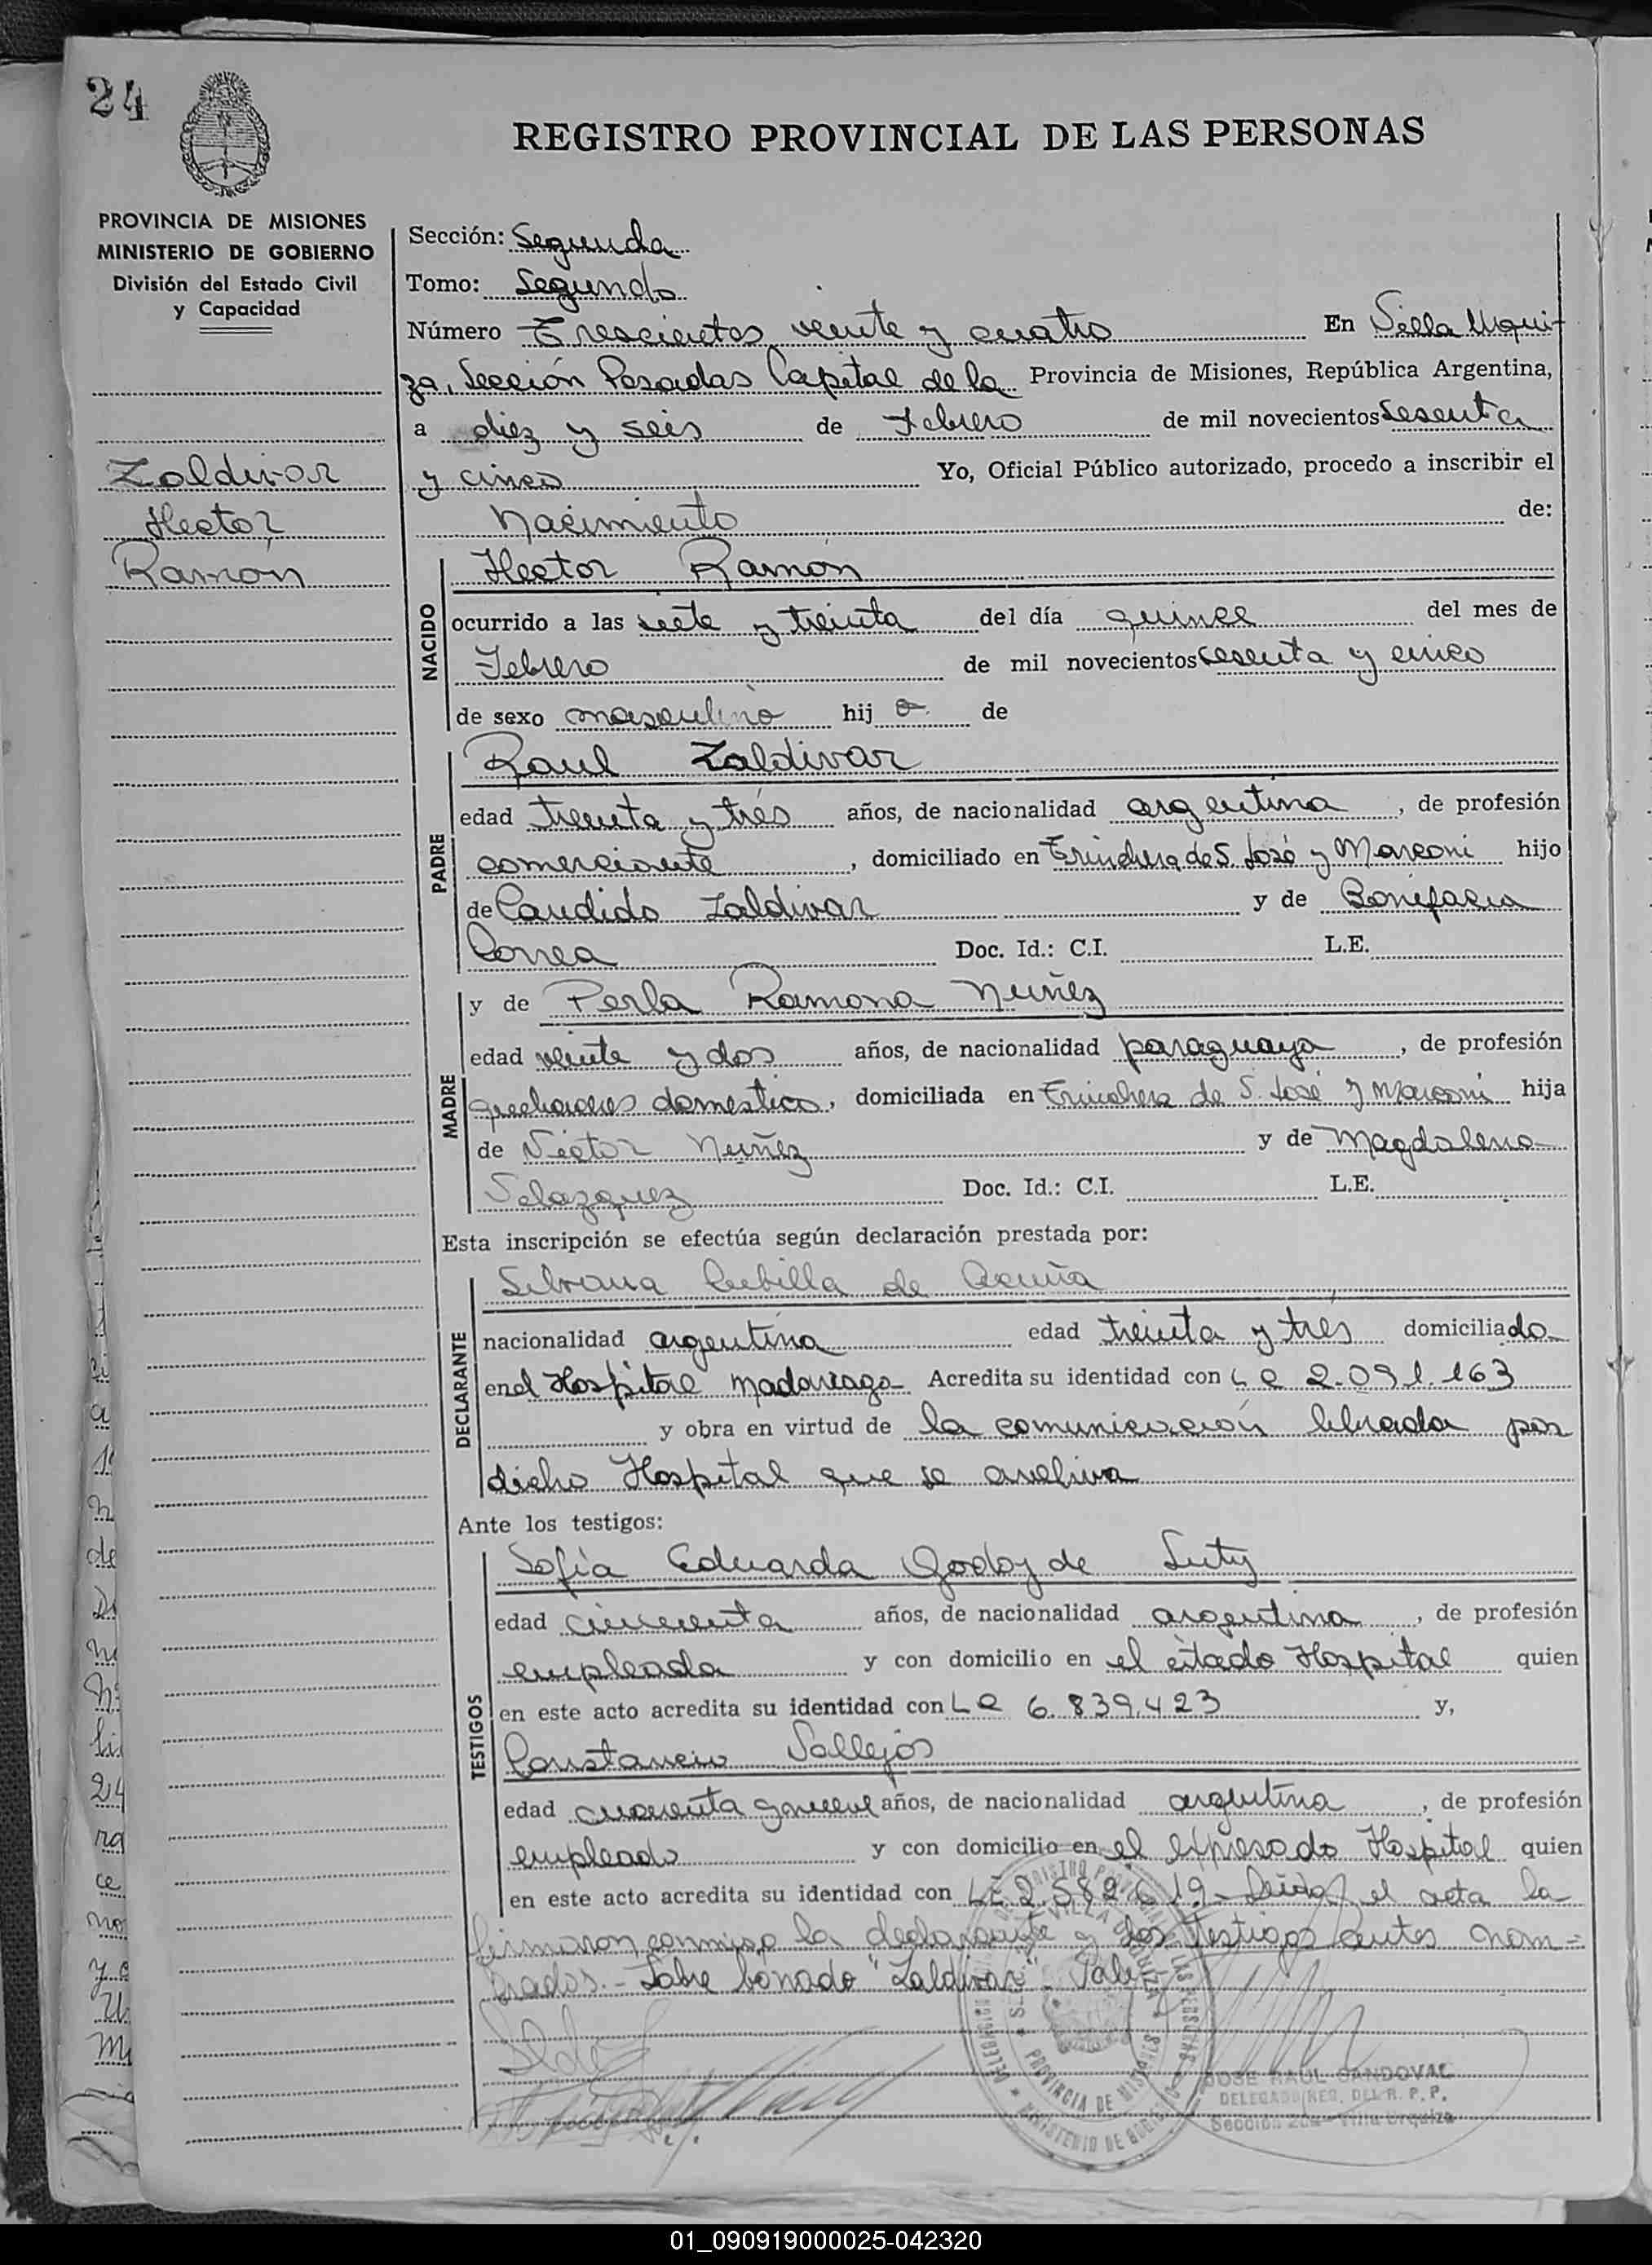 24
REGISTRO PROVINCIAL DE LAS PERSONAS
PROVINCIA DE MISIONES
MINISTERIO DE GOBIERNO
División del Estado Civil
y Capacidad
Zaldivar
Hector
Ramón
Sección: Segunda
Tomo: Segundo
Número Trescientos veinte y cuatro En Villa Urqui-
za, Sección Posadas Capital de la Provincia de Misiones, República Argentina,
a diez y seis de Febrero de mil novecientos sesenta
y cinco Yo, Oficial Público autorizado, procedo a inscribir el
Nacimiento de:
NACIDO
Hector Ramón
ocurrido a las siete y treinta del día quince del mes de
Febrero de mil novecientos sesenta y cinco
de sexo masculino hij o de
PADRE
Raul Zaldivar
edad treinta y trés años, de nacionalidad argentina, de profesión
comerciante, domiciliado en Trinchera de S. José y Marconi hijo
de Candido Zaldivar y de Bonifacia
Correa Doc. Id.: C.I. L.E.
MADRE
y de Perla Ramona Nuñez
edad veinte y dos años, de nacionalidad paraguaya, de profesión
quehaceres domestico, domiciliada en Trinchera de S. José y Marconi hija
de Victor Nuñez y de Magdalena
Velazquez Doc. Id.: C.I. L.E.
Esta inscripción se efectúa según declaración prestada por:
DECLARANTE
Silvana Cubilla de Acuña
nacionalidad argentina edad treinta y trés domiciliado
en el Hospital Madariaga Acredita su identidad con L C 2.091.163
y obra en virtud de la comunicación librada por
dicho Hospital que se archiva
Ante los testigos:
TESTIGOS
Sofía Eduarda Godoy de
edad cincuenta años, de nacionalidad argentina, de profesión
empleada y con domicilio en el citado Hospital quien
en este acto acredita su identidad con L C 6.839.423 y,
Constancio Vallejos
edad cuarenta y nueve años, de nacionalidad argentina, de profesión
empleado y con domicilio en el expresado Hospital quien
en este acto acredita su identidad con LE 2.582.619 - Leida el acta la
firmaron conmigo la declarante y los testigos antes nom=
brados.- Sobre borrado "Zaldivar". Vale
JOSE RAUL SANDOVAL
DELEGADO REG. DEL R. P. P.
Sección 2da - Villa Urquiza
01_090919000025-042320